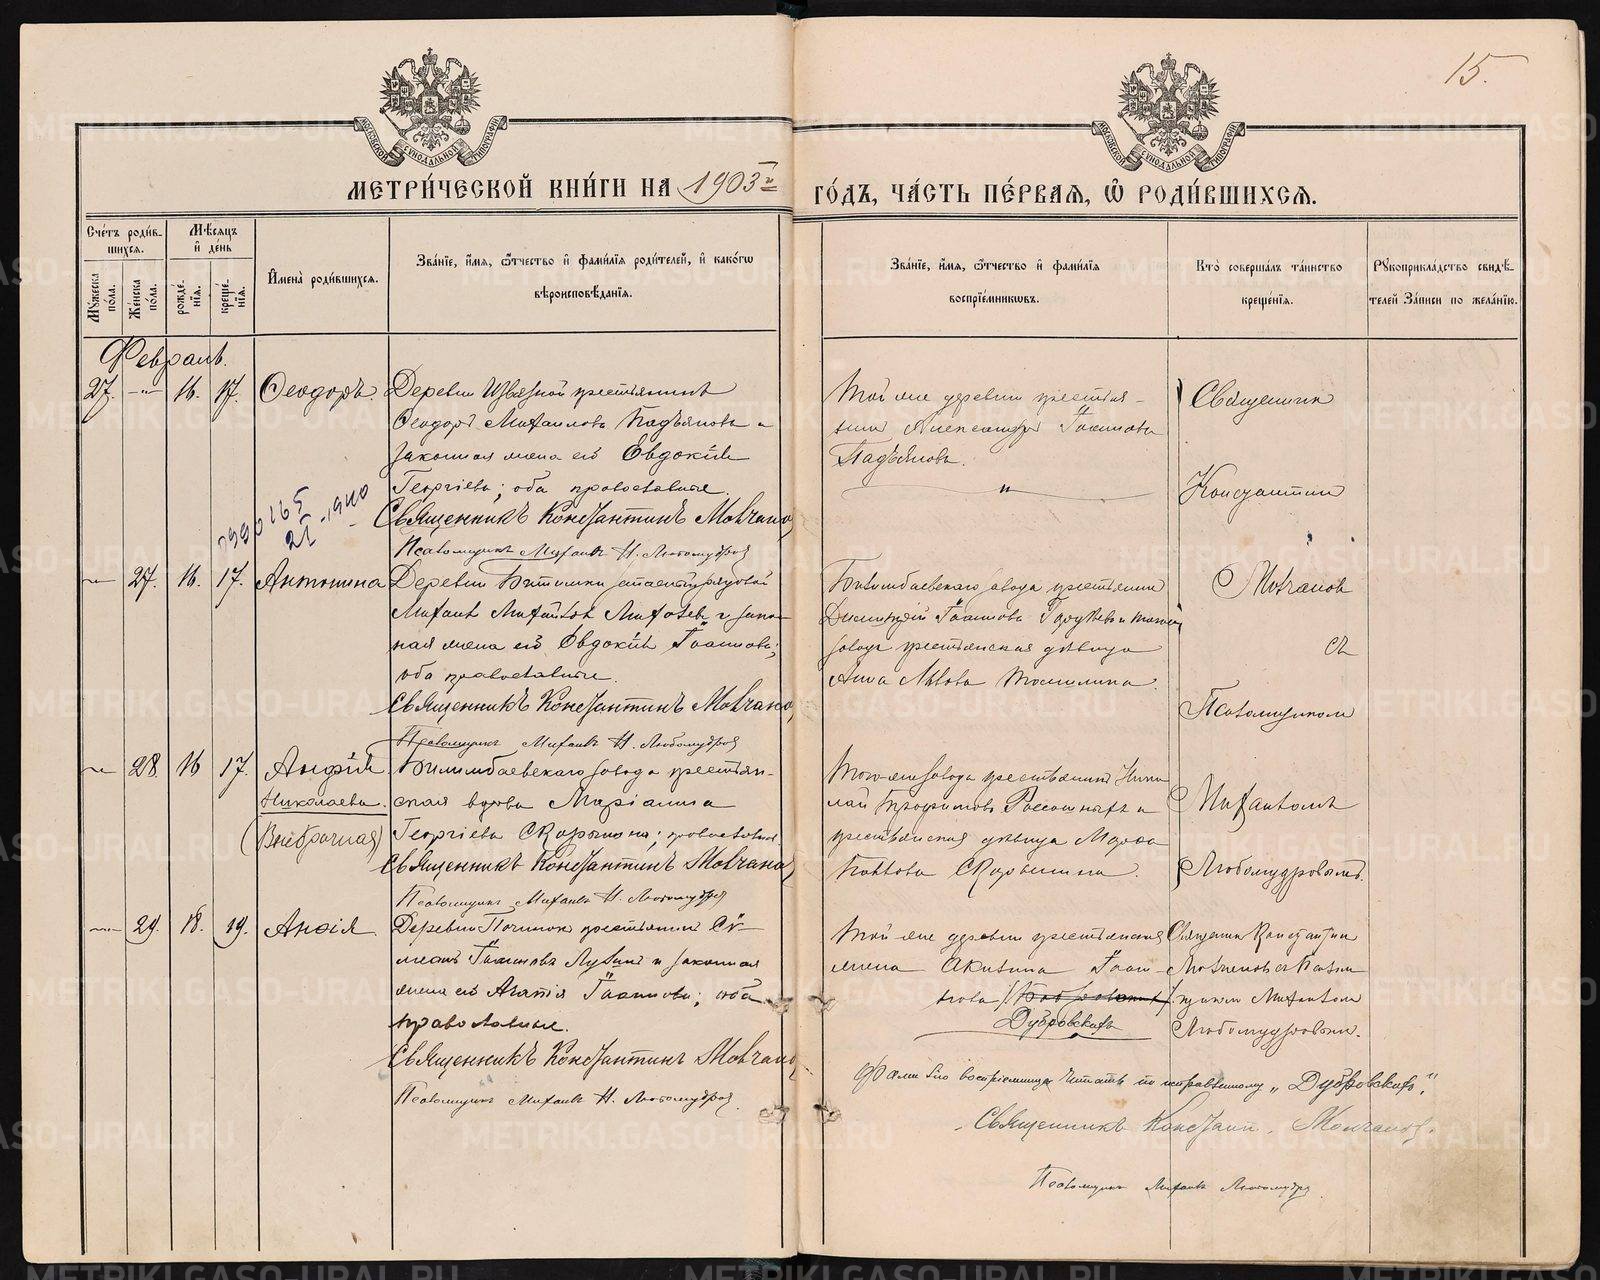 15.
МЕТРИ́ЧЕСКОЙ КНИ́ГИ НА 1903й ГО́ДЪ, ЧА́СТЬ ПЕ́РВАЯ, Ѽ РОДИ́ВШИХСЯ.
Сче́тъ роди́вшихся.
Мѣ́сяцъ и҆ де́нь
Мꙋ́жеска по́ла.
Же́нска по́ла.
рожде́нїя.
креще́нїя.
И҆мена̀ роди́вшихся.
Зва́нїе, и҆́мя, ѻ҆́тчество и҆ фами́лїя роди́телей, и҆ како́гѡ
вѣроисповѣ́данїя.
Зва́нїе, и҆́мя, ѻ҆́тчество и҆ фами́лїя
воспрїе́мникѡвъ.
Кто̀ соверша́лъ та́инство
креще́нїя.
Рꙋкоприкла́дство свидѣ́-
телей за́писи по жела́нїю.
Февраль.
27. —"— 16. 17. Ѳеодоръ.
Деревни Извѣзной крестьянинъ
Ѳеодоръ Михаиловъ Падъяновъ и
законная жена его Евдокія
Георгіева; оба православные.
Священникъ Константинъ Молчановъ
Псаломщикъ Михаилъ Н. Любомудровъ
Той же деревни крестья-
нинъ Александръ Іоанновъ
Падъяновъ.
Священник
Константин
Молчанов
съ
Псаломщиком
Михаиломъ
Любомудровымъ.
27. 16. 17. Антонина
Деревни Битимки
Михаилъ Михайловъ и закон-
ная жена его Евдокія Іоаннова;
оба православные.
Священникъ Константинъ Молчановъ
Псаломщикъ Михаилъ Н. Любомудровъ
Билимбаевскаго завода крестьянин
Димитрій Іоанновъ и того же
завода крестьянская дѣвица
Анна Львова Томилина.
28 16 17. Анфія
Николаева.
(Внебрачная)
Билимбаевскаго завода крестьян-
ская вдова Маріанна
Георгіева Скорынина; православная
Священникъ Константинъ Молчановъ
Псаломщикъ Михаилъ Н. Любомудровъ
Того же завода крестьянинъ Нико
лай Трофимовъ и
крестьянская дѣвица
Павлова Скорынина.
29. 18. 19. Анѳія
Деревни Починок крестьянин
Іоанновъ и законная
жена его Агапія Іоаннова; оба
православные.
Священникъ Константинъ Молчановъ
Псаломщикъ Михаилъ Н. Любомудровъ
Той же деревни крестьянская
жена Акилина Іоан-
нова
Дубровскихъ
Священник Константин
Молчанов съ Псалом
щиком Михаилом
Любомудровым.
Фамилію воспріемницы читать по исправленному „Дубровскихъ".
Священникъ Констант. Молчановъ.
Псаломщикъ Михаилъ Любомудровъ
7990165
21 - 1940